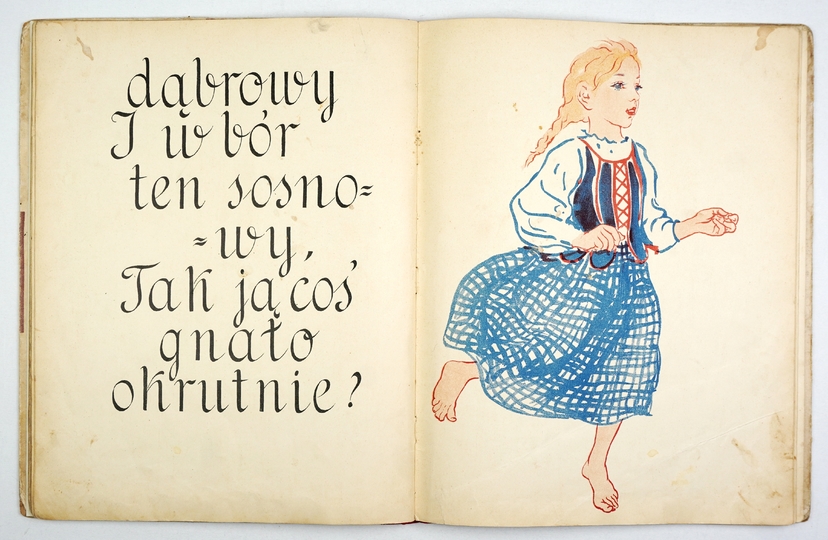 dąbrowy
I w bór
ten sosno=
=wy,
Tak ją coś
gnało
okrutnie?